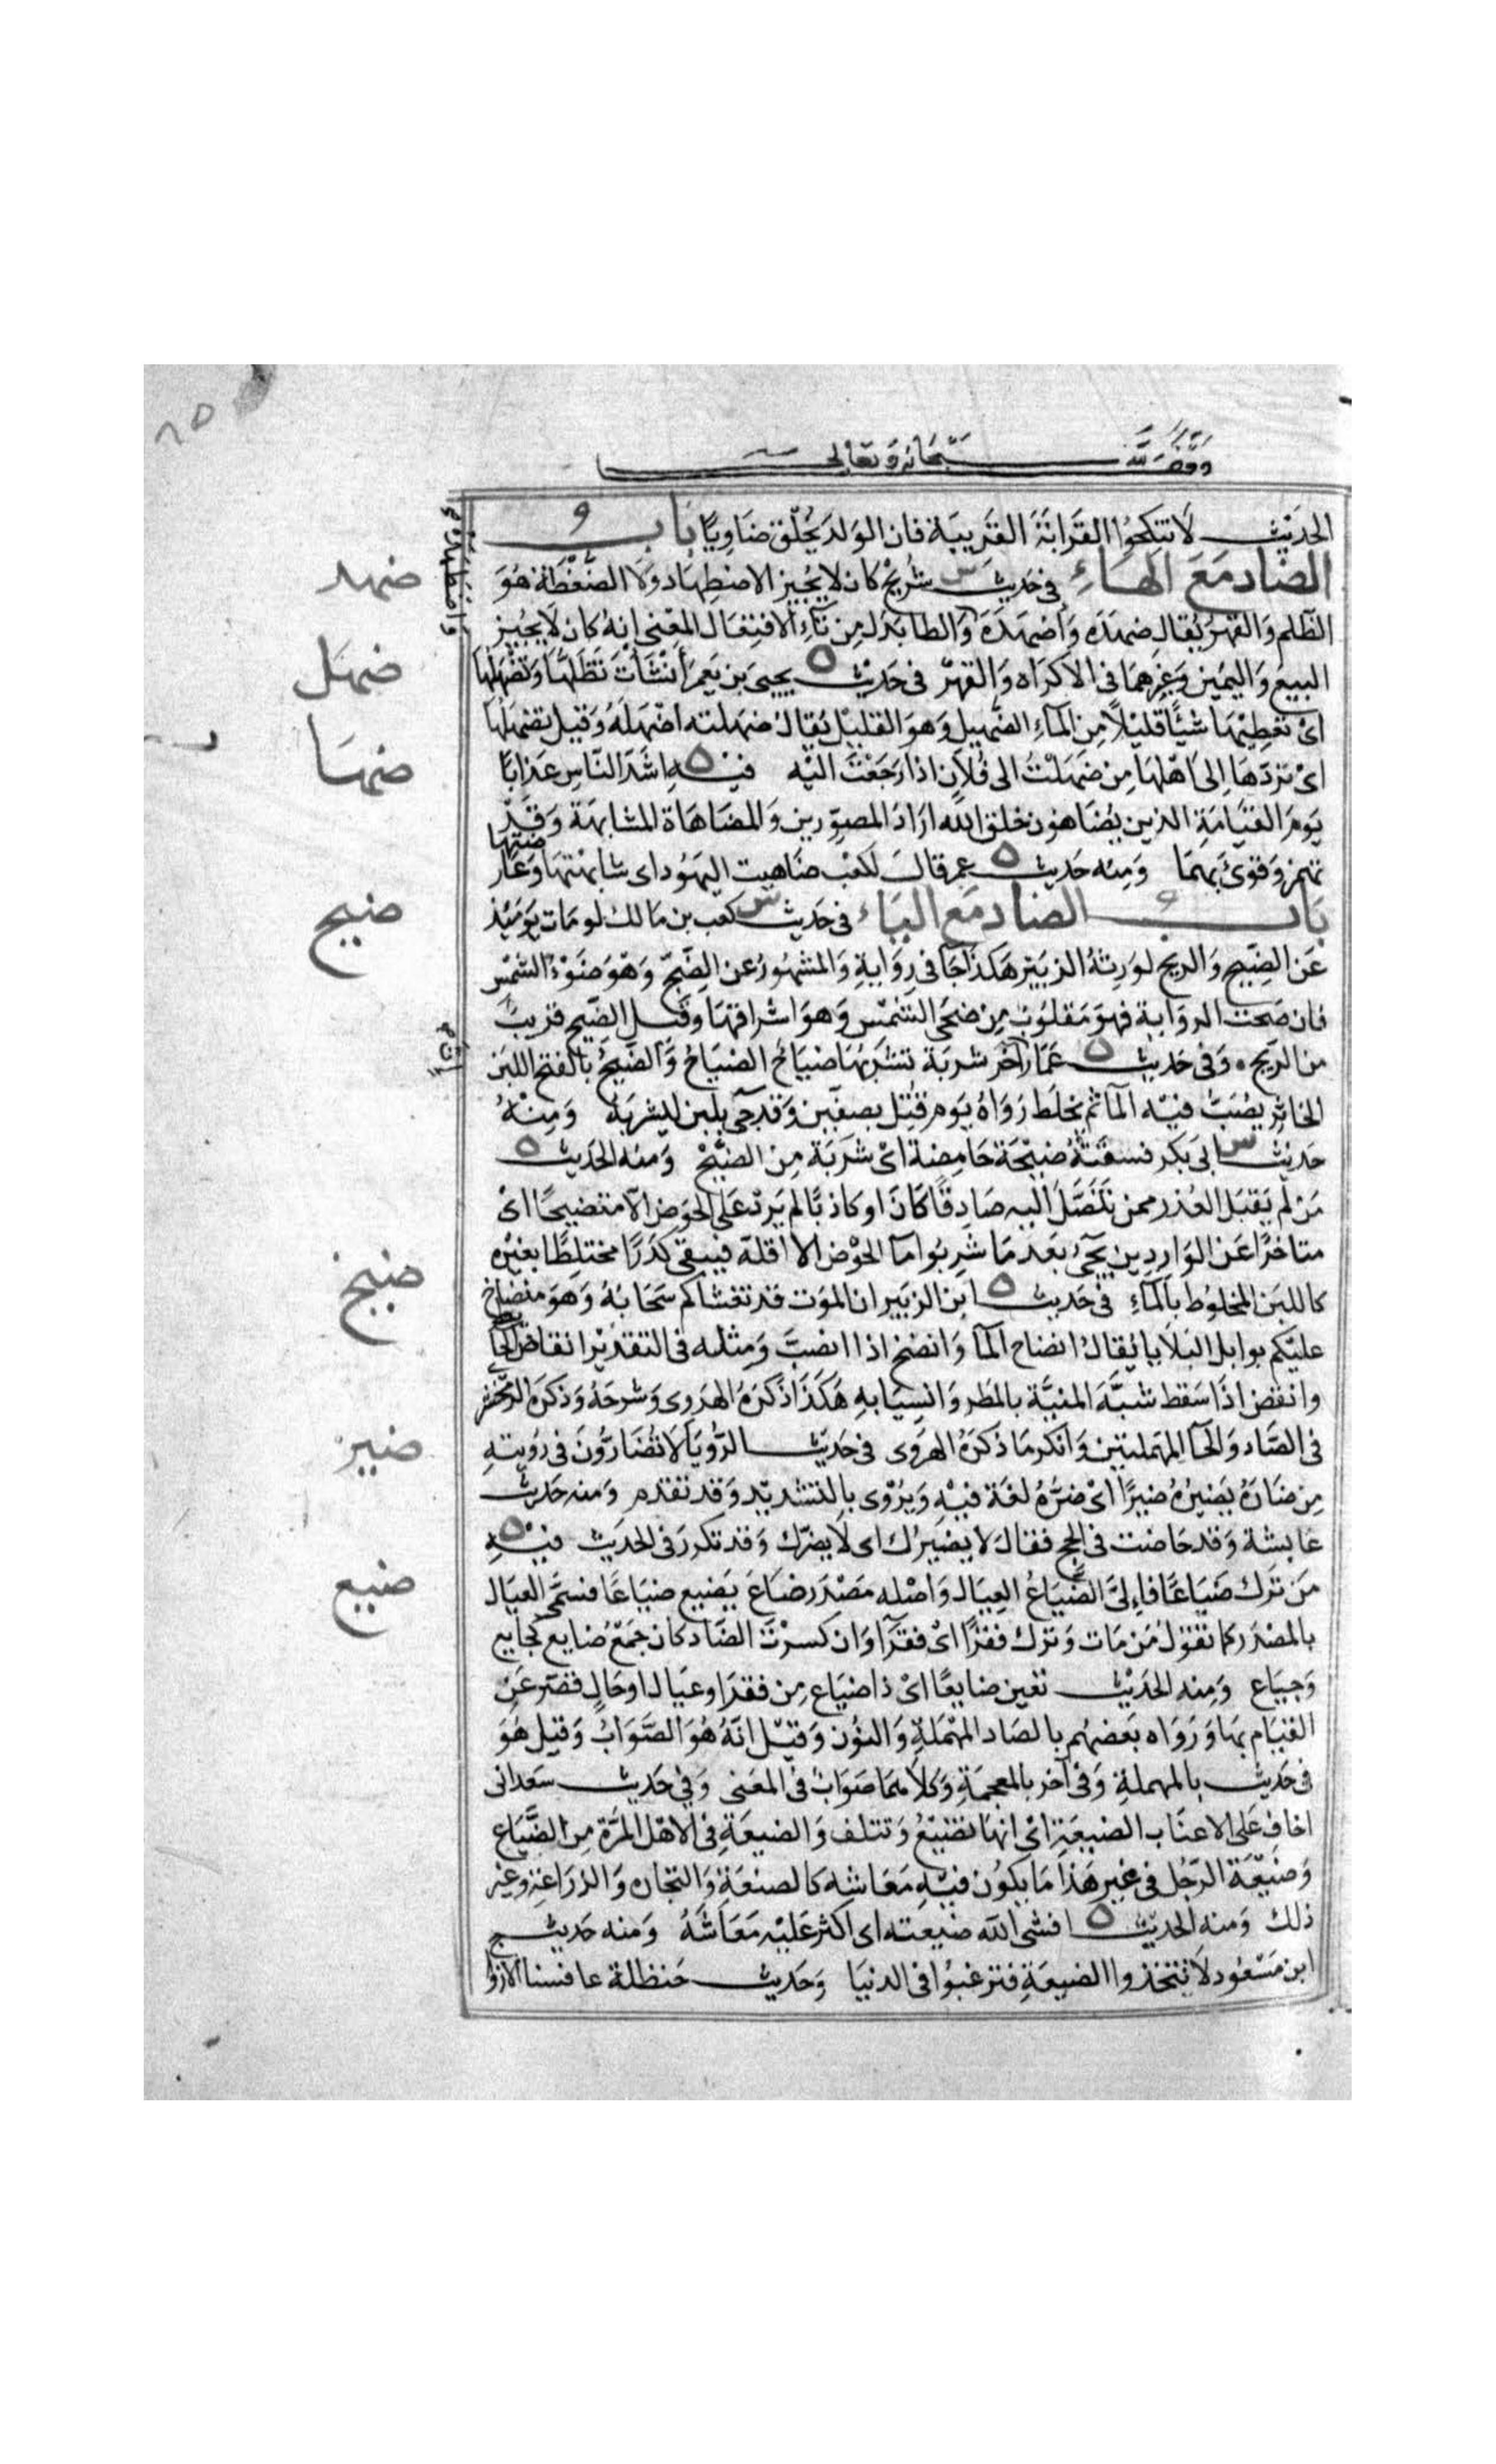 وقف لله سبحانه وتعالى
الحديث لَا تنكِحُوا القَرَابَةَ القَريبَة فان الوَلدَ يُخلَق ضَاوِيًا بَاب
الضاد مَعَ الهَاءِ في حَديث س شُريْح كان لا يُجيز الاضطِهَاد وَلا الضغْطَة هُوَ
الظلم وَالقهرُ يُقال ضهَدَه وَأضهَدَه وَالطا بَدَل مِن تَاءِ الافتِعَال المعْنى انه كان لَا يُجيز
البيع وَاليَمين وَغيرهمَا في الاكرَاه وَالقهرْ في حَديْث ه يحيى بَن يَعمَر أنشَأتَ تَطُلّهَا وَتضْهَلُهَا
ايْ تعْطِيْهَا شيْئًا قليْلًا مِن المآءِ الضَّهيل وَهوَ القليْل يُقالُ ضهَلته اضْهَلهُ وَقيل تضهَلهَا
ايْ تردّهَا اِلى اَهْلهَا مِن ضهَلْتُ الى فُلاَن اذا رَجَعْتَ اليْه فيْه ه اشَدّ النّاسِ عَذابًا
يَومَ القيَامَةِ الذين يُضَاهئون خلق الله ارَادَ المصوّرين وَالمضَاهَاة المشابهَة وَقَدْ
تهمز وَقرئ بهمَا وَمِنه حَديث ه عمر قالَ لكَعْب ضَاهيت اليهُود اى شابهْتهَا وَعَارضتها
بَاب الضاد مَع اليَاء في حَديث س كعب بن مَالك لو مَات يَومَئِذ
عَن الضِّيح وَالريح لوَرِثهُ الزبَيْر هَكذا جَا في رِوَايةٍ وَالمشهُورُ عن الضِّحّ وَهْوَ ضَوْءُ الشمْسِ
فان صَحت الروَاية فهوَ مَقلوُبٌ مِن ضحَى الشمْسِ وَهوَ اشراقهَا وَقيل الضِّيح قريبٌ
من الرّيح وَفى حَديث ه عَمّار آخر شربَة تشرَبُهَا ضيَاح الضيَاحُ وَالضَّيحُ بالفتح اللبَن
الخاثِر يُصَبُّ فيْه المآ ثم يخلَط رَوَاهُ يَوم قُتِل بصفين وَقد جئ بلبن ليشربَهُ وَمِنْهُ
حَديْث س ابى بَكر فسقتهُ ضيْحَة حَامِضة ايْ شَرْبَة مِن الضَّيْحْ وَمنه الحَديث ه
مَن لم يَقبَل العُذر ممن تَنَصَّل اليه صَادِقًا كَانَ او كاذبًا لم يَردْ عَلى الحَوض الاّ متضيحًا ايْ
متاخرًا عَن الوَارِدين يَجئ بَعد مَا شربُوا مآ الحوْض الا اقلهُ فيبقى كدَرًا مختلِطًا بغيْره
كاللبَن المخلوُط بالمآءِ في حَديث ه ابن الزبَير ان الموْت قد تغشاكم سَحَابُهُ وَهوَ منضاخ
عليْكم بوابل البَلَايا يُقالُ انضاخ المآ وَانضخ اذا انصَبّ وَمثله في التقديْر انقاض الحَائط
وانقض اذَا سَقط شبَّهَ المنيَّة بالمَطر وَانسيَابهِ هَكَذَا ذكرَهُ الهَروى وَشرحَهُ وَذكرَه الزمخشرى
في الصَّاد وَالحآ المهمَلتين وَانكر مَا ذكرَهُ الهَروى في حَديث الرُّويَا لَا تُضَارُّونَ في رُويتهِ
مِن ضَارَهُ يَضيرُهُ ضيرًا ايْ ضرَّهُ لغة فيْهِ وَيُرْوى بالتشديد وَقد تقدم وَمنه حَديْث
عَايشة وَقد حَاضت في الحج فقالَ لا يضيرُك اى لا يضرّك وَقد تكررَ في الحديْث فيْهِ ه
مَن تَرك ضَيَاعًا فاِلىَّ الضَّيَاعُ العِيَال وَاصْله مَصْدَر ضَاعَ يَضيع ضيَاعًا فسمّى العيَال
بالمصْدَر كما نقوْلُ مَن مَات وَترك فقرًا ايْ فقرآ وَان كسرْتَ الضّاد كان جَمْعُ ضايع كجَايع
وَجيَاع وَمِنه الحَديْث تعين ضايعًا ايْ ذا ضيَاع مِن فقر او عيَال او حَال قصّر عَن
القيَام بهَا وَرَوَاه بَعضهُم بالصَاد المهْمَلةِ وَالنوُن وَقيْل انّهُ هُوَ الصَّوَابُ وَقيل هُوَ
في حَديْث بالمهملةِ وَفى آخر بالمعجمَةِ وَكلَاهمَا صَوَابٌ في المعَنى وَفي حَديث سَعد انى
اخاف عَلى الاعنَاب الضيعَة ايْ انهَا تضيْعُ وَتتلف وَالضيعَةِ في الاصْل المرَّة مِن الضّيَاع
وَضَيْعَة الرّجُل في غير هَذا مَا يكوُن فيْهِ مَعَاشه كالصنعَةِ وَالتجَاره وَالزرَاعة وغير
ذلك وَمنه الحَديْث ه افشى الله ضيعته اى اكثر عَليْه مَعَاشَهُ وَمنه حَديث
ابن مَسْعُود لَا تتخذوا الضيعَةِ فترغبوُا في الدنيَا وَحَديث حَنظلة عافسنا الازوا
ضهد
ضهَل
ضهَا
ضيح
ضيخ
ضير
ضيع
واضطهَدَه